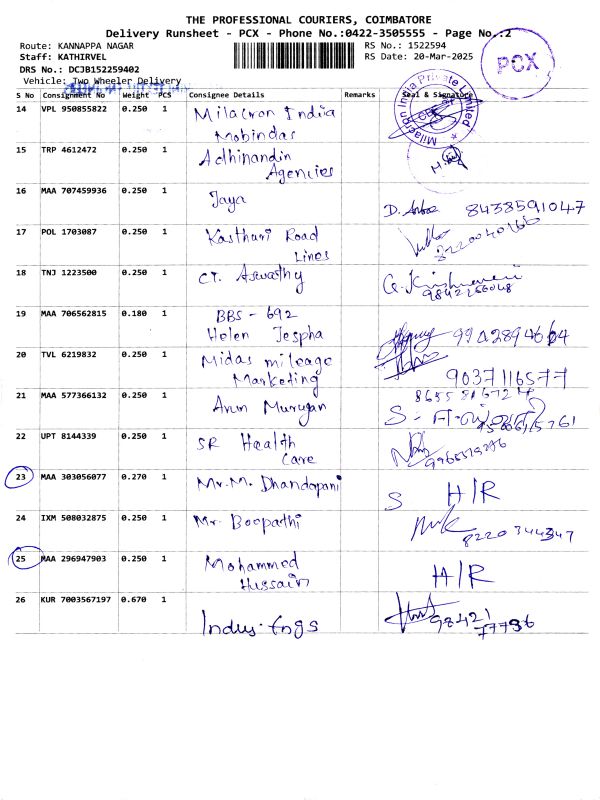 THE PROFESSIONAL COURIERS, COIMBATORE
Delivery Runsheet - PCX - Phone No.:0422-3505555 - Page No.:2
Route: KANNAPPA NAGAR
Staff: KATHIRVEL
DRS No.: DCJB152259402
Vehicle: Two Wheeler Delivery
RS No.: 1522594
RS Date: 20-Mar-2025
PCX
S No Consignment No Weight PCS Consignee Details Remarks Seal & Signature
14 VPL 950855822 0.250 1 Milacron India
Mobindas
Milacron India Private Limited
15 TRP 4612472 0.250 1 Adhinandin
Agencies
16 MAA 707459936 0.250 1 Jaya 8438591047
17 POL 1703087 0.250 1 Kasthuri Road
Lines
18 TNJ 1223500 0.250 1 CT. Aswathy
19 MAA 706562815 0.180 1 BBS - 692
Helen Jespha
20 TVL 6219832 0.250 1 Midas mileage
Marketing 9037116577
21 MAA 577366132 0.250 1 Arun Murugan
22 UPT 8144339 0.250 1 SR Health
Care
23 MAA 303056077 0.270 1 Mr.M. Dhandapani H/R
24 IXM 508032875 0.250 1 Mr Boopathi 8220344347
25 MAA 296947903 0.250 1 Mohammed
Hussain H/R
26 KUR 7003567197 0.670 1 Indus.Engs 98421
77796